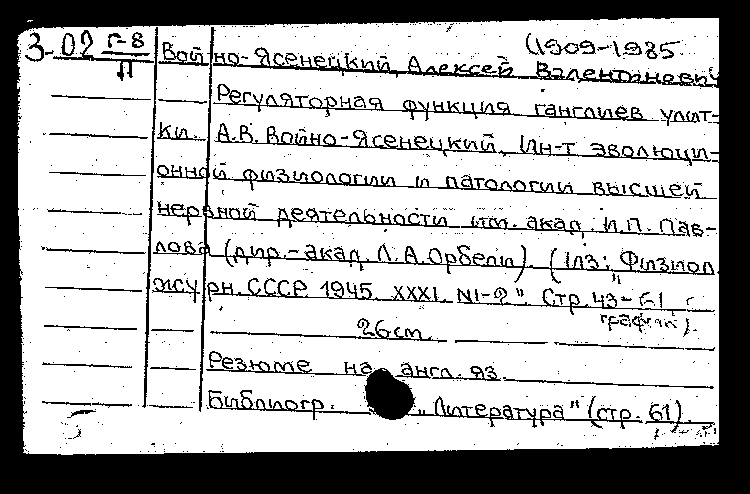 (1909-1985
З-02 Г-8/П Войно-Ясенецкий, Алексей Валентинович
Регуляторная функция ганглиев улит-
ки. А.В. Войно-Ясенецкий, Ин-т эволюци-
онной физиологии и патологии высшей
нервной деятельности им. акад. И.П. Пав-
лова (дир.-акад. Л.А. Орбели). (Из: „Физиол.
журн. СССР 1945. XXXI. N1-2". Стр. 43-61 с
график).
26 cm.
Резюме на англ. яз.
Библиогр. „Литература" (стр. 61).